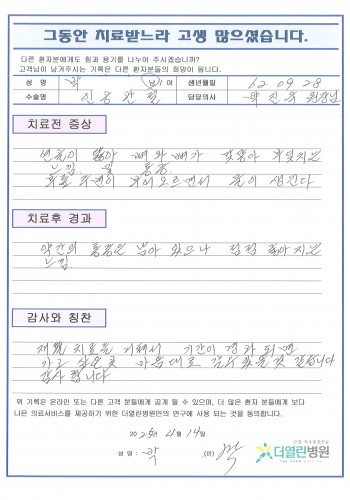 그동안 치료받느라 고생 많으셨습니다.
다른 환자분에게도 힘과 용기를 나누어 주시겠습니까?
고객님이 남겨주시는 기록은 다른 환자분들의 희망이 됩니다.
성 명 박 (남)여 생년월일 62 09 28
수술명 인공관절 담당의사 박진욱 원장님
치료전 증상
연골이 닳아 뼈와 뼈가 맞닿아 부딪치는
느낌 및 통증
무릎 주변이 부어오르면서 물이 생긴다
치료후 경과
약간의 통증은 남아 있으나 점점 좋아지는
느낌.
감사와 칭찬
재활 치료를 거쳐서 기간이 경과 되면
가고 싶은 곳 마음대로 갈수 있을것 같습니다
감사합니다
위 기록은 온라인 또는 다른 고객 분들에게 공개 될 수 있으며, 더 많은 환자 분들에게 보다
나은 의료서비스를 제공하기 위한 더열린병원만의 연구에 사용 되는 것을 동의합니다.
2025년 4월 14일
성 명 : 박 (인) 박
더열린병원